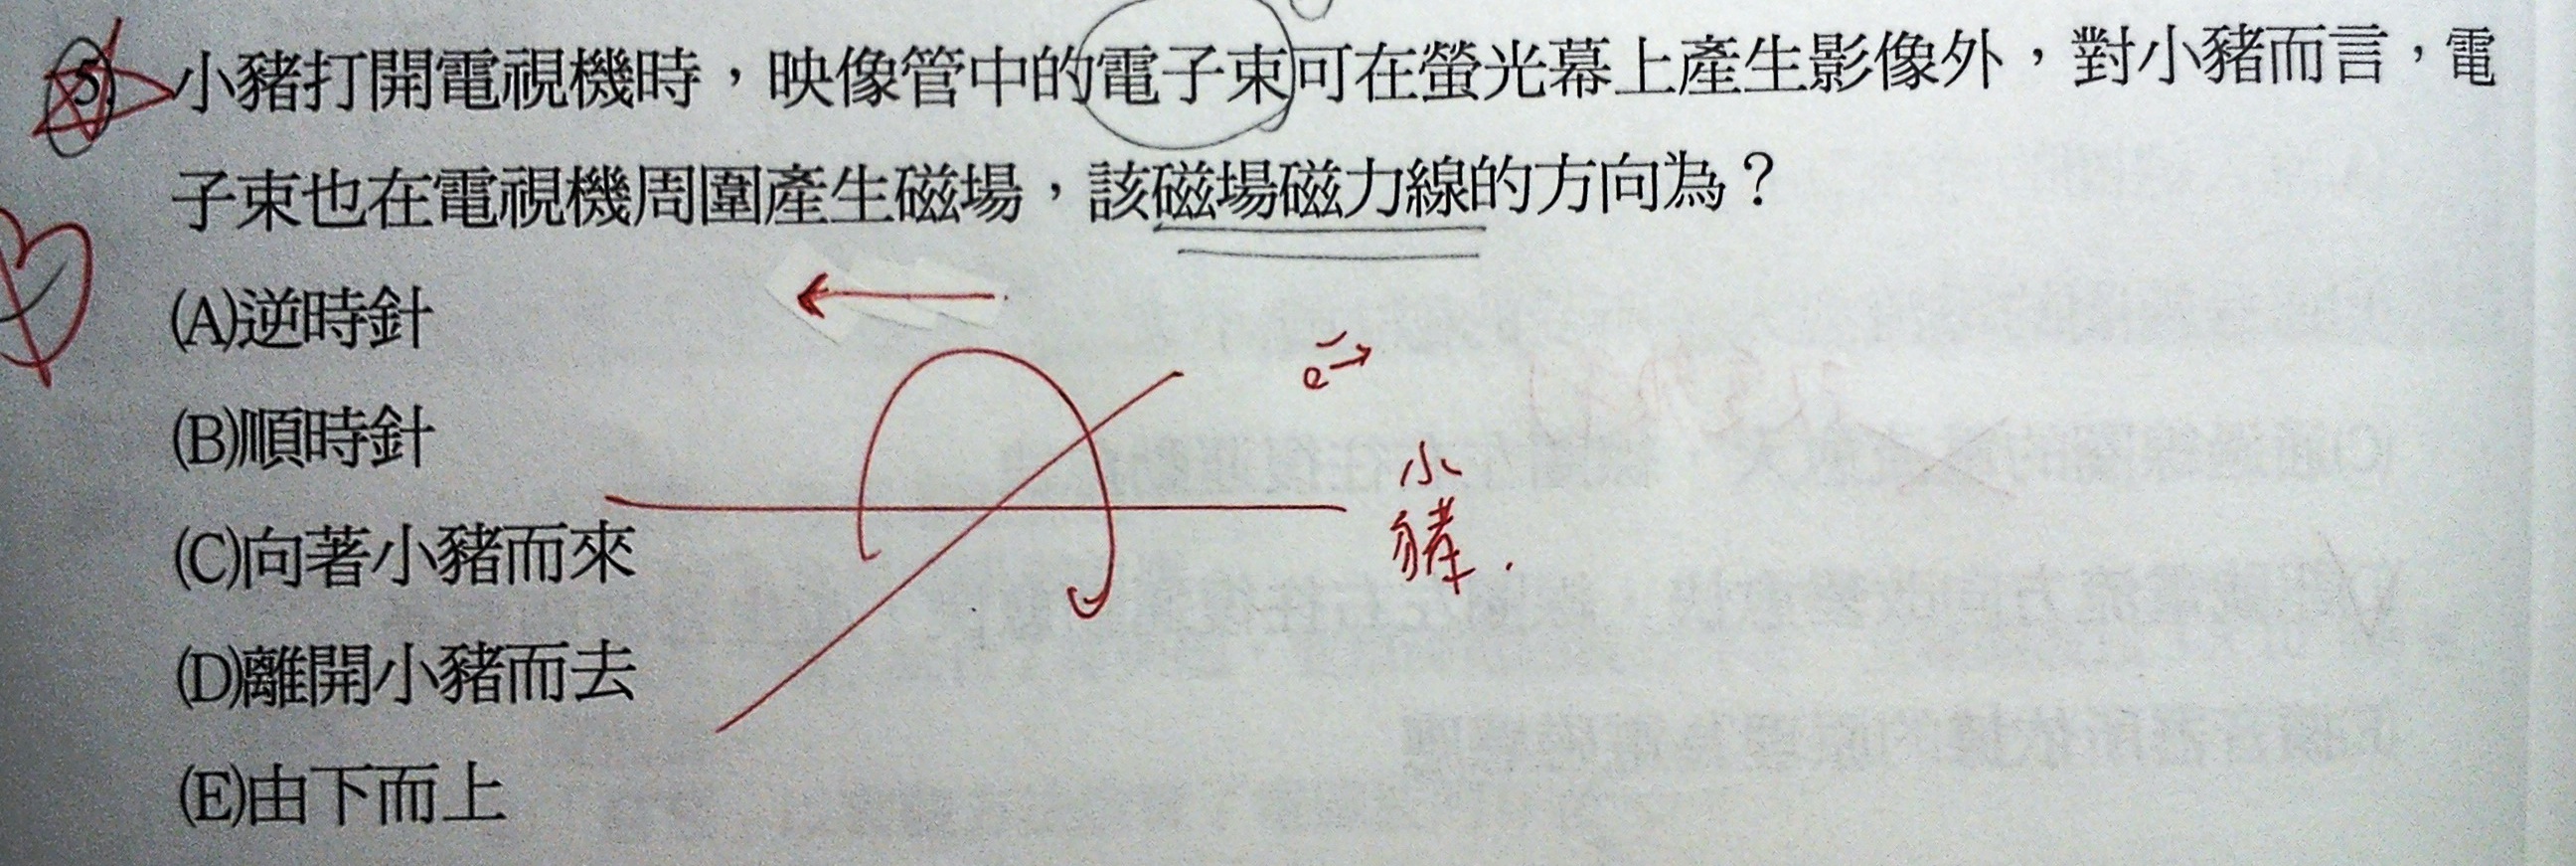 5. 小豬打開電視機時，映像管中的電子束可在螢光幕上產生影像外，對小豬而言，電
子束也在電視機周圍產生磁場，該磁場磁力線的方向為？
(A)逆時針
(B)順時針
(C)向著小豬而來
(D)離開小豬而去
(E)由下而上
e⁻→
小
豬